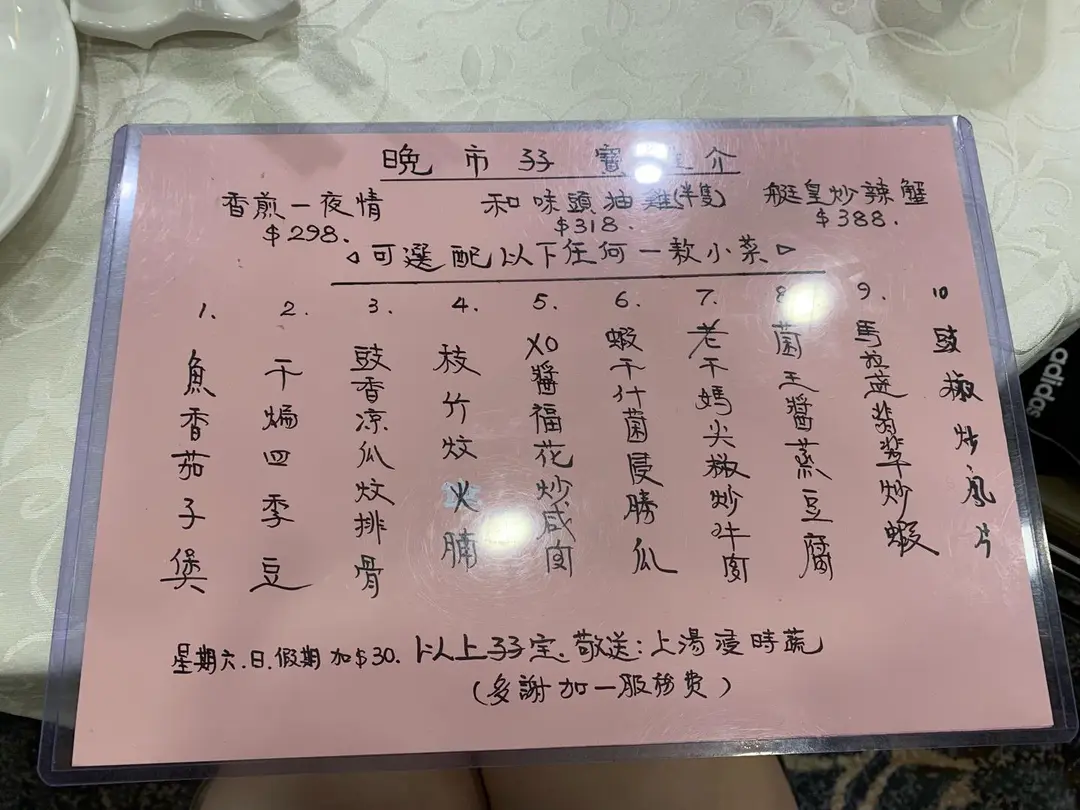 晚市孖寶推介
香煎一夜情
$298.
和味頭油雞(半隻)
$318.
艇皇炒辣蟹
$388.
◁可選配以下任何一款小菜▷
1. 魚香茄子煲
2. 干煸四季豆
3. 豉香凉瓜炆排骨
4. 枝竹炆火腩
5. XO醬福花炒咸肉
6. 蝦干什菌浸勝瓜
7. 老干媽尖椒炒牛肉
8 菌王醬蒸豆腐
9. 馬拉盞翡翠炒蝦
10 豉椒炒鳳片
星期六.日.假期加$30. 以上孖宝.敬送:上湯浸時蔬
(多謝加一服務費)
adidas